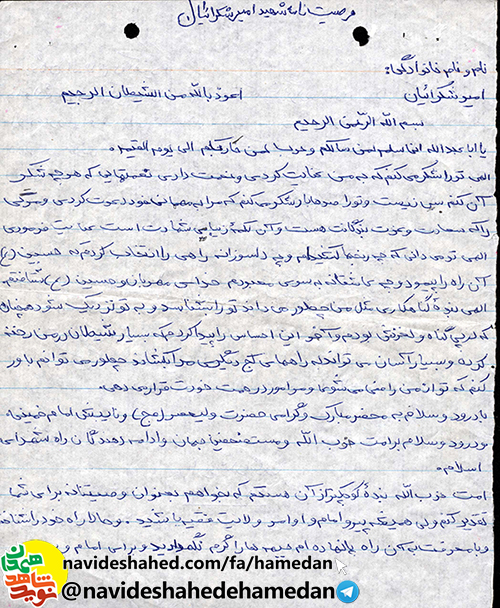 وصیت نامه شهید امیر شکرائیان
نام و نام خانوادگی:
امیر شکرائیان اعوذ بالله من الشیطان الرجیم
بسم الله الرحمن الرحیم
یا ابا عبدالله انی سلم لمن سالمکم و حرب لمن حاربکم الی یوم القیمه
الهی تو را شکر می کنم که به من عنایت کردی و نعمت دادی نعمتهایی که هر چه شکر
آن کنم بس نیست و تو را صدها بار شکر می کنم که مرا به مهمانی خود دعوت کردی و مرگی
را که سعادت و عزت بندگانت هست و آن کلمه زیبای شهادت است عنایت فرمودی
الهی تو می دانی که چه زجرها کشیدم و چه دلسوزانه راهی را انتخاب کردم که حسین (ع)
آن راه را پیمود و چه عاشقانه به سوی معبودم خدای مهربان و حسین (ع) شتافتم
الهی بنده گناهکاری مثل من چطور می داند تو را بشناسد و به تو نزدیک شود همچنان
که لایق گناه و لغزش بودم و آخر این احساس را پیدا کردم که بسیار شیطان در من رخنه
کرده و بسیار آسان می تواند به راههای کج دیگری مرا بکشاند چطور می توانم باور
کنم که تو از من راضی می شوی و مرا مورد رحمت خودت قرار می دهی.
با درود و سلام به محضر مبارک و گرامی حضرت ولیعصر (عج) و نایبش امام خمینی.
و درود و سلام بر امت حزب الله و مستضعفین جهان و ادامه دهندگان راه شهدای
اسلام.
امت حزب الله بنده کوچکتر از آن هستم که بخواهم بعنوان وصیتنامه برای شما
تقدیر کنم ولی همیشه پیرو امام و اوامر ولایت فقیه باشید. و حالا راه خود را شناخته
و با معرفت به این راه پا نهاده ام همه جا را گرم نگهدارید و برای امام و
navideshahed.com/fa/hamedan
@navideshahedehamedan
نوید شاهد همدان